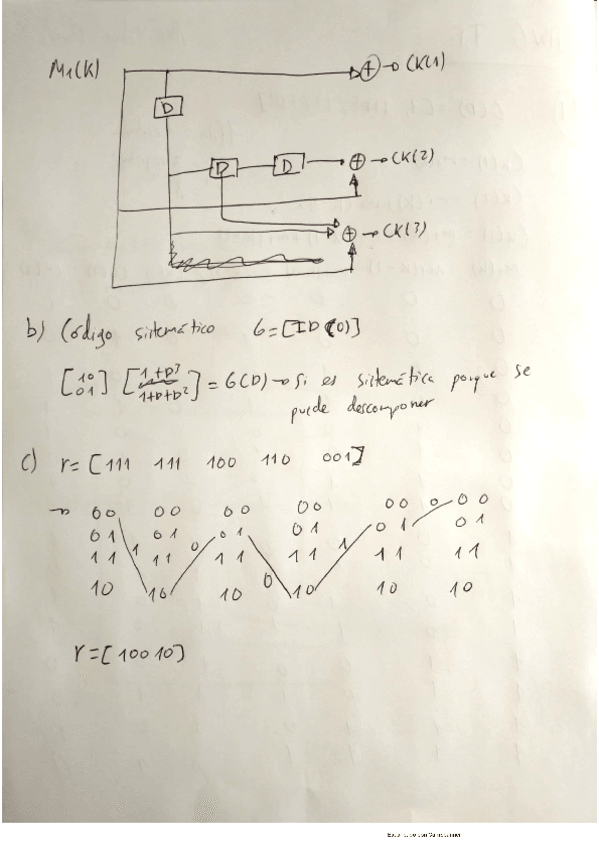 M1(K)
⊕ → CK(1)
D
D D ⊕ → CK(2)
⊕ → CK(3)
b) Código sistemático G=[ID (0)]
[10 01] [1+D³ 1+D+D²] = G(D) → Si es sistemática porque se
puede descomponer
c) r=[111 111 100 110 001]
→ 00 00 00 00 00 0 00
01 1 01 0 01 01 1 01 01
11 11 11 11 11 11
10 10 10 0 10 10 10
r=[10010]